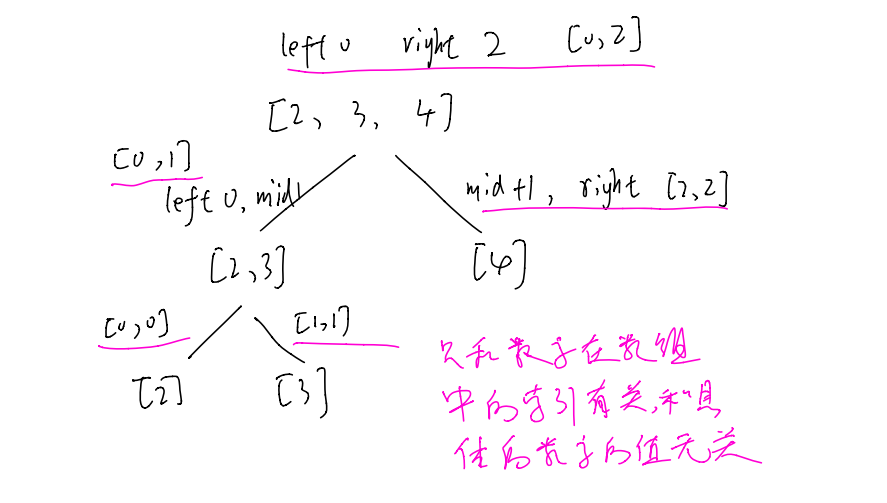 left 0 right 2 [0,2]
[2, 3, 4]
[0,1]
left 0, mid1
mid+1, right [2,2]
[2,3]
[4]
[0,0]
[1,1]
[2]
[3]
只和数字在数组
中的索引有关,和具
体的数字的值无关